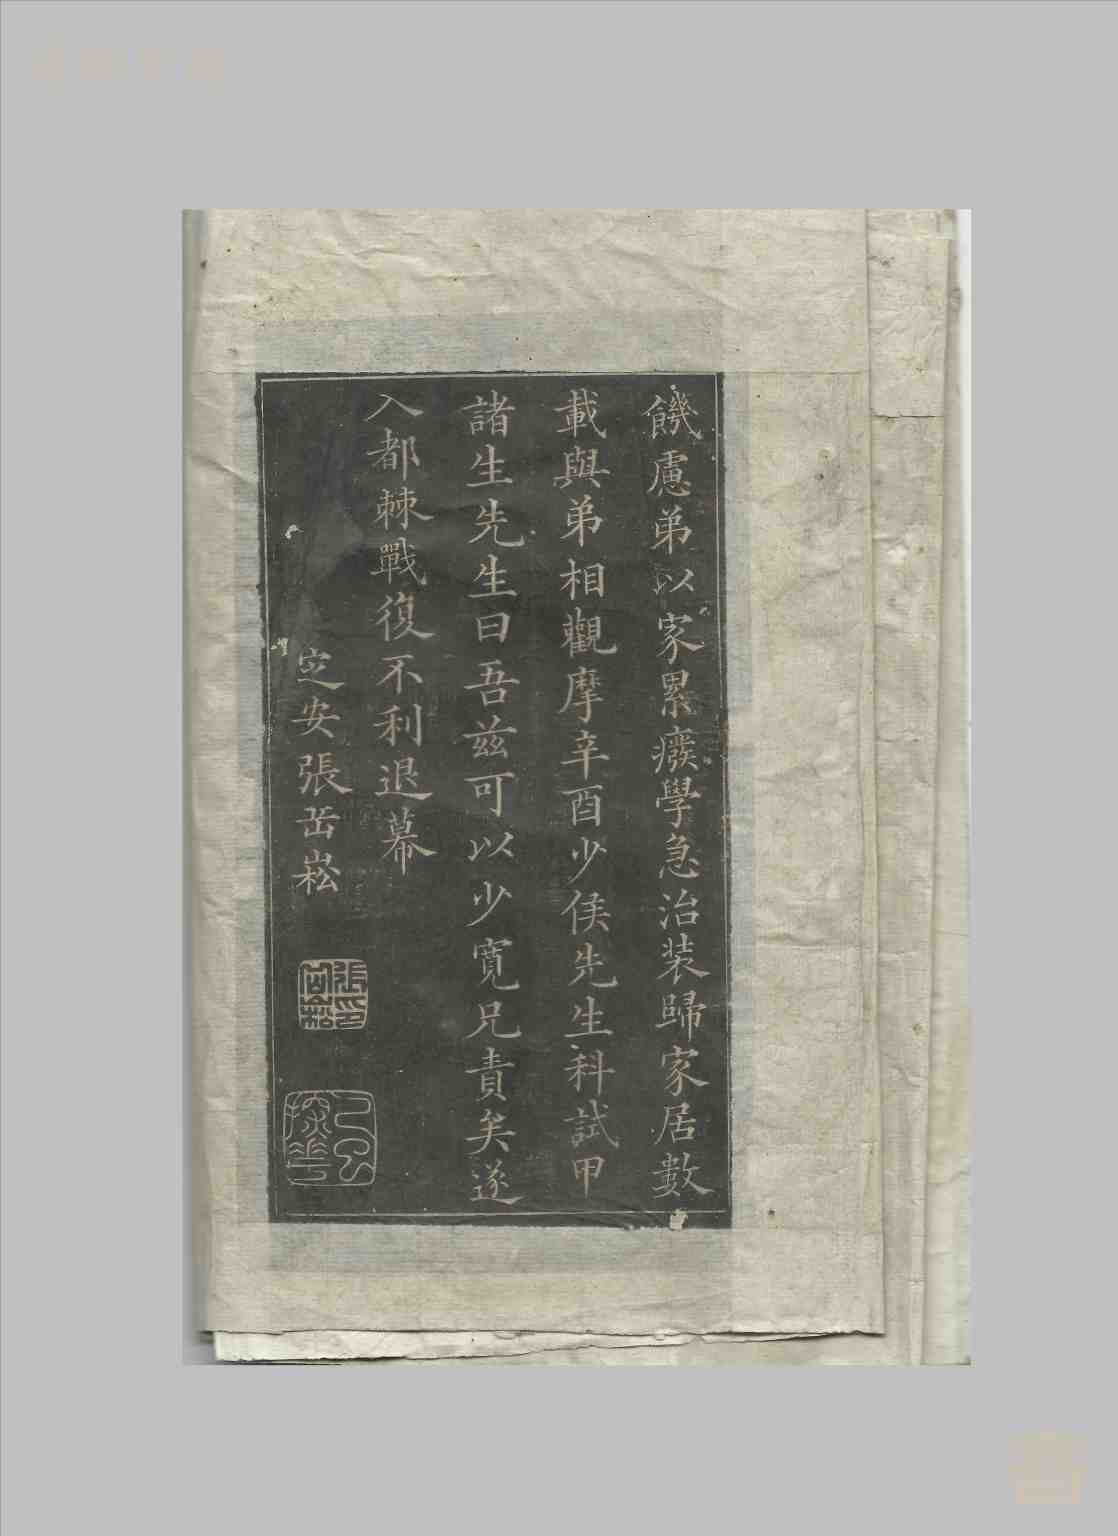 饑慮弟以家累癈學急治装歸家居數
載與弟相觀摩辛酉少侯先生科試甲
諸生先生曰吾兹可以少寬兄責矣遂
入都棘戰復不利退幕
定安張岳崧
張印
己巳探花